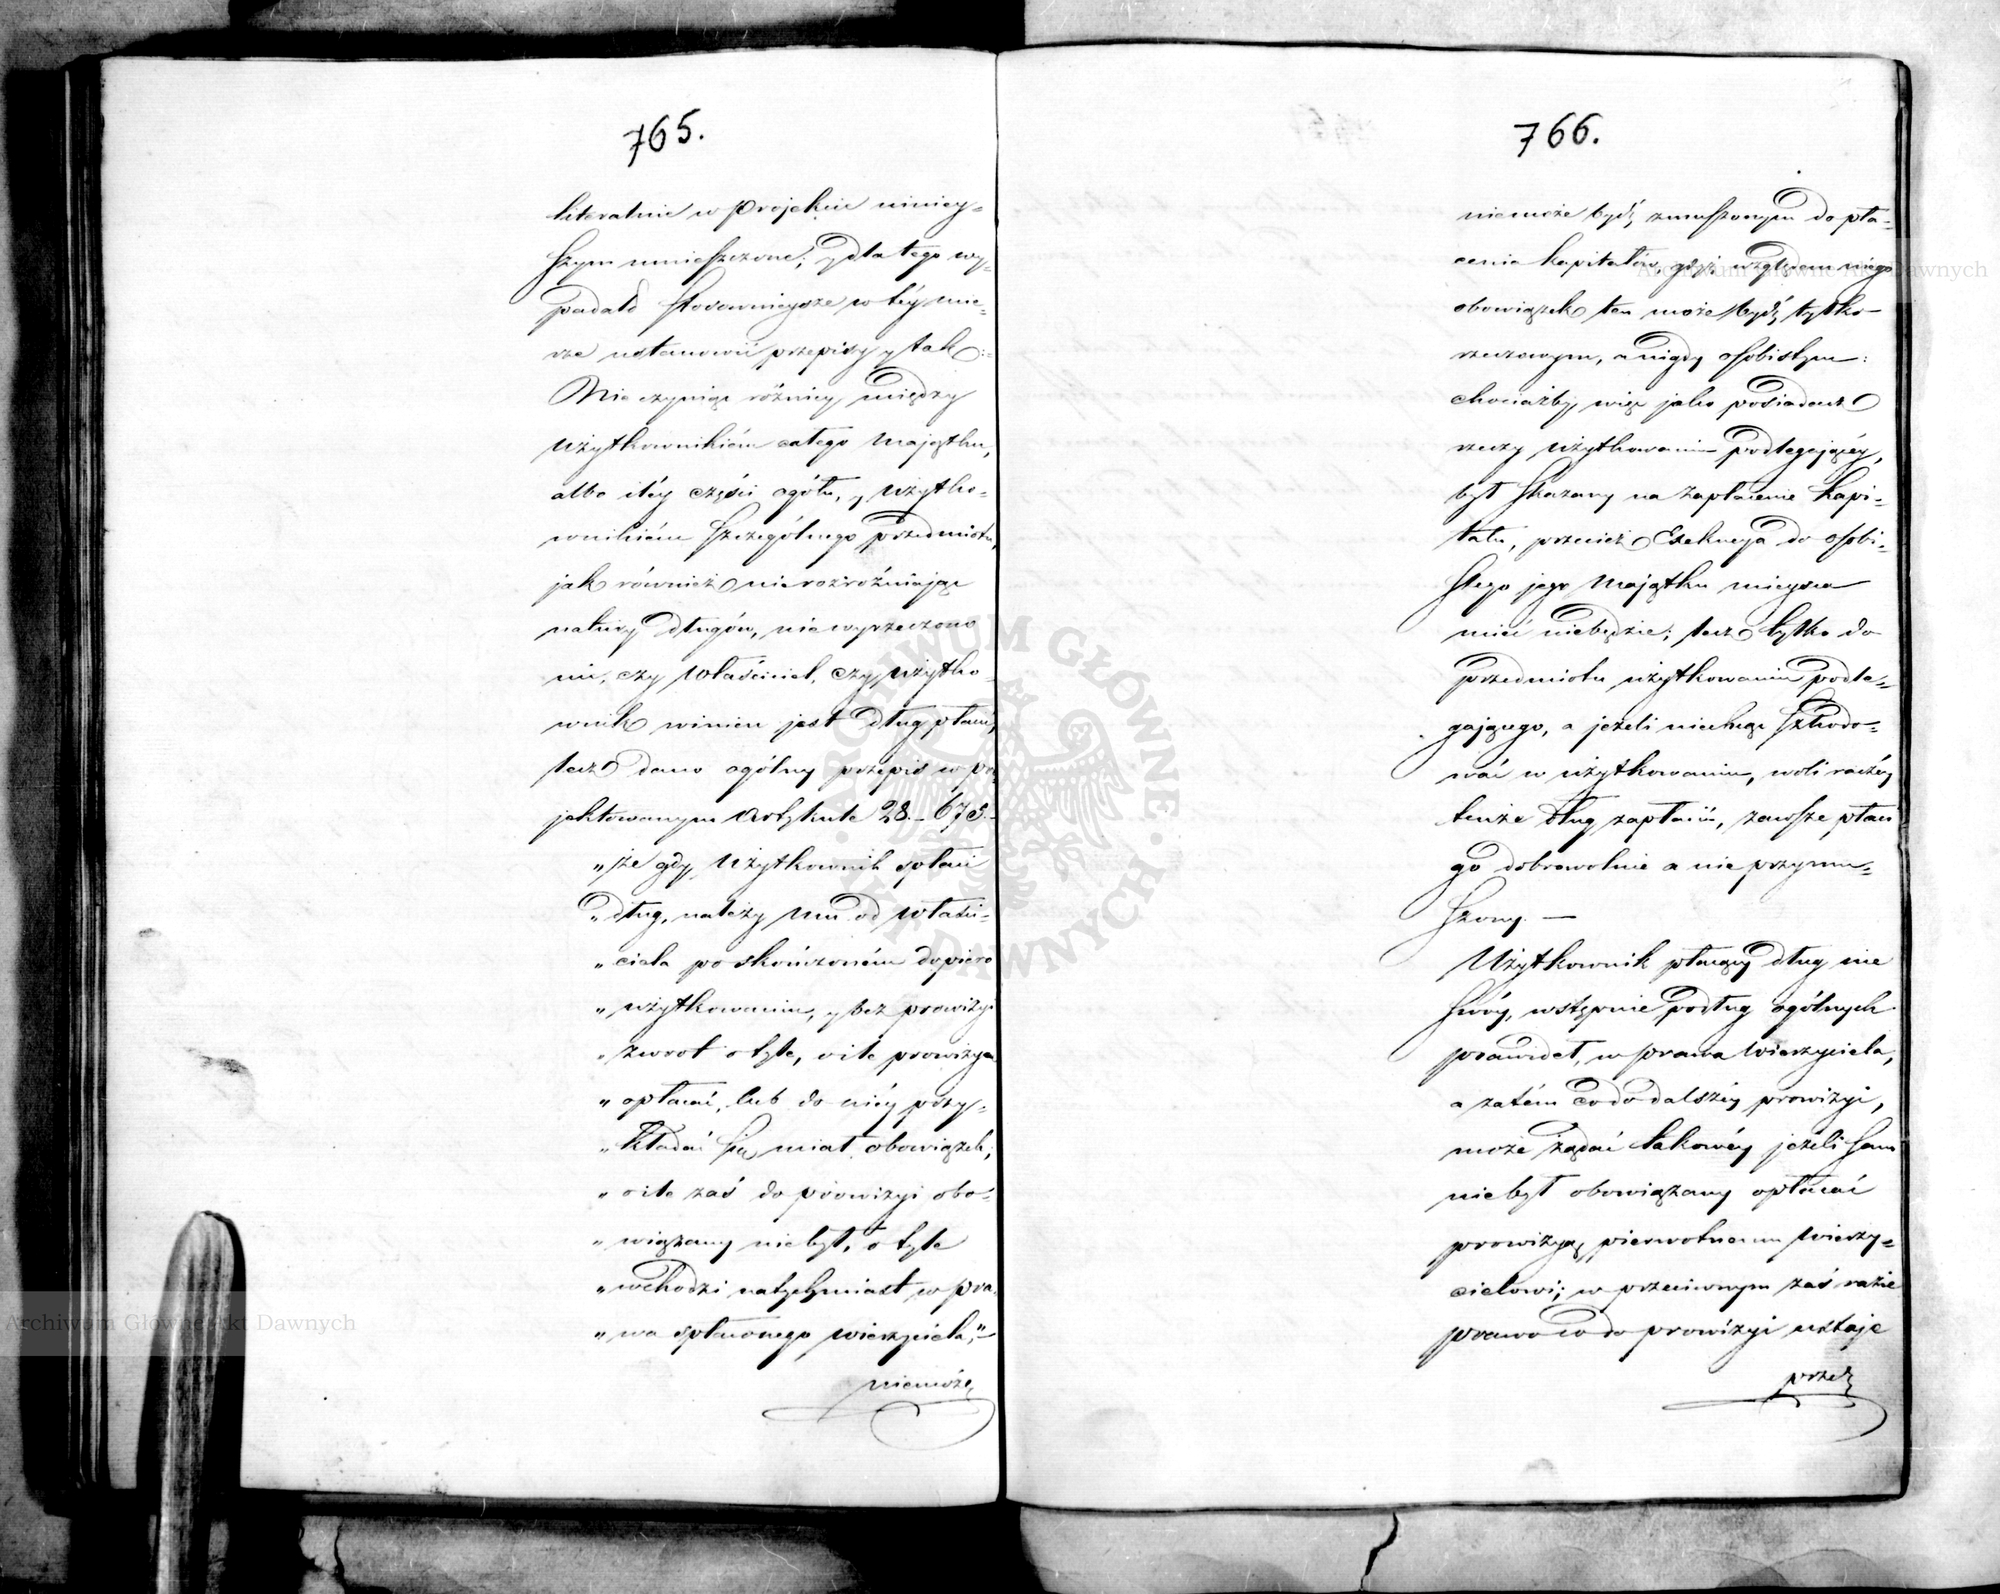 765.
literalnie w projekcie niniey=
szym umieszczone; y dla tego wy=
padało stosownieysze w téy mie=
rze ustanowić przepisy y tak:
Nie czyniąc różnicy między
użytkownikiém całego majątku,
albo iłéy części ogółu, y użytko=
wnikiém szczególnego przedmiotu,
jak również nierozróżniając
natury długów, niewyrzeczono
ni, czy właściciel, czy użytko=
wnik winien jest dług płacić,
lecz dano ogólny przepis w pro
jektowanym Artykule 28.- 673.-
„że gdy użytkownik spłaci
„dług, należy mu od właści=
„ciela po skończoném dopiero
„użytkowaniu, y bez prowizyi
„zwrot o tyle, o ile prowizyą
„opłacać, lub do niéy przy=
„kładać się miał obowiązek;
„o ile zaś do prowizyi obo=
„wiązany niebył, o tyle
„wchodzi natychmiast w pra=
„wa spłaconego wierzyciela,"-
niemoże
766.
niemoże bydź zmuszonym do pła=
cenia kapitałów, gdyż względem niego
obowiązek ten może bydź tylko
rzeczowym, a nigdy osobistym:
chociażby więc jako posiadacz
rzeczy użytkowaniu podlegającéy,
był skazany na zapłacenie kapi=
tału, przecież Exekucja do osobi=
stego jego majątku mieysca
mieć niebędzie; lecz tylko do
przedmiotu użytkowaniu podle=
gającego, a jeżeli niechcąc szkodo=
wać w użytkowaniu, woli raczéy
tenże dług zapłacić, zawsze płaci
go dobrowolnie a nie przymu=
szony. —
Użytkownik płacący dług nie
swóy, wstępuie podług ogólnych
prawideł, w prawa wierzyciela,
a zatém co do dalszéy prowizyi,
może żądać takowéy jeżeli sam
niebył obowiązany opłacać
prowizyą pierwotnemu wierzy=
cielowi; w przeciwnym zaś razie
prawo co do prowizyi ustaje
przez
Archiwum Główne Akt Dawnych
Archiwum Główne Akt Dawnych
ARCHIWUM GŁÓWNE AKT DAWNYCH